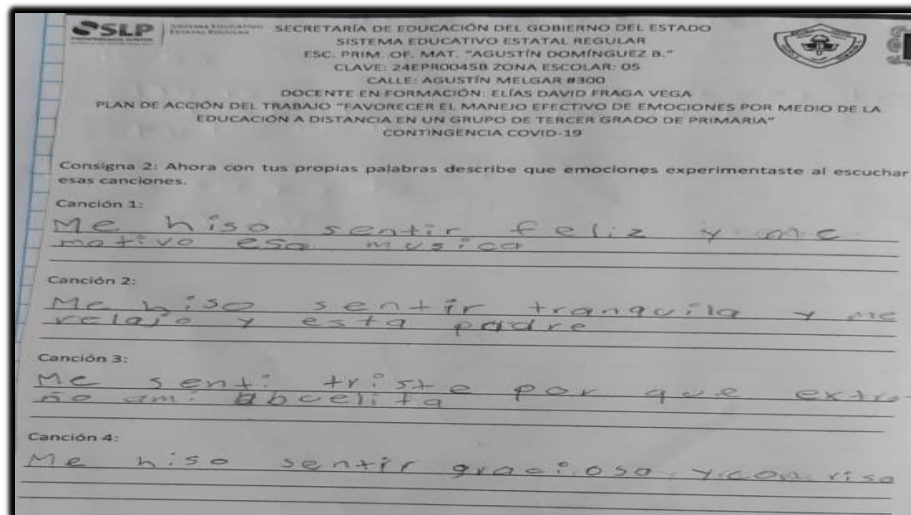 SLP
SISTEMA EDUCATIVO
ESTATAL REGULAR
SECRETARÍA DE EDUCACIÓN DEL GOBIERNO DEL ESTADO
SISTEMA EDUCATIVO ESTATAL REGULAR
ESC. PRIM. OF. MAT. "AGUSTÍN DOMÍNGUEZ B."
CLAVE: 24EPR0045B ZONA ESCOLAR: 05
CALLE: AGUSTÍN MELGAR #300
DOCENTE EN FORMACIÓN: ELÍAS DAVID FRAGA VEGA
PLAN DE ACCIÓN DEL TRABAJO "FAVORECER EL MANEJO EFECTIVO DE EMOCIONES POR MEDIO DE LA
EDUCACIÓN A DISTANCIA EN UN GRUPO DE TERCER GRADO DE PRIMARIA"
CONTINGENCIA COVID-19
Consigna 2: Ahora con tus propias palabras describe que emociones experimentaste al escuchar
esas canciones.
Canción 1:
Me hiso sentir feliz y me
motivo esa musica
Canción 2:
Me hiso sentir tranquila y me
relajo y esta padre
Canción 3:
Me senti triste por que extra
ño ami abuelita
Canción 4:
Me hiso sentir graciosa y con risa